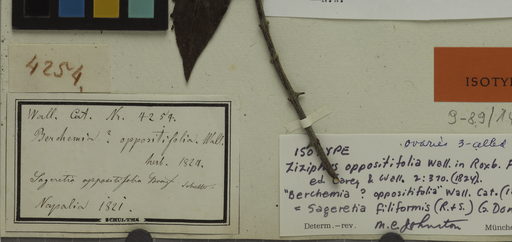 4254,
Wall. Cat. Nr. 4254.
Berchemia? oppositifolia. Wall.
hrb. 1824.
Sageretia oppositifolia Brong.
Napalia 1821.
SCHULTES
ISOTYPE
ovaries 3-celled
ISOTYPE
Ziziphus oppositifolia Wall. in Roxb. F
ed. Carey & Wall. 2:370. (1824).
"Berchemia ? oppositifolia" Wall. Cat.
= Sageretia filiformis (R.+S.) G. Don
Determ.–rev. M.C. Johnston Münche